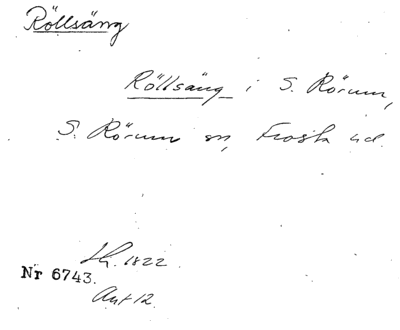 Röllsäng
Röllsäng i S. Rörum,
S. Rörum sn, Frosta hd.
Lh. 1822.
Nr 6743.
Ant 12.